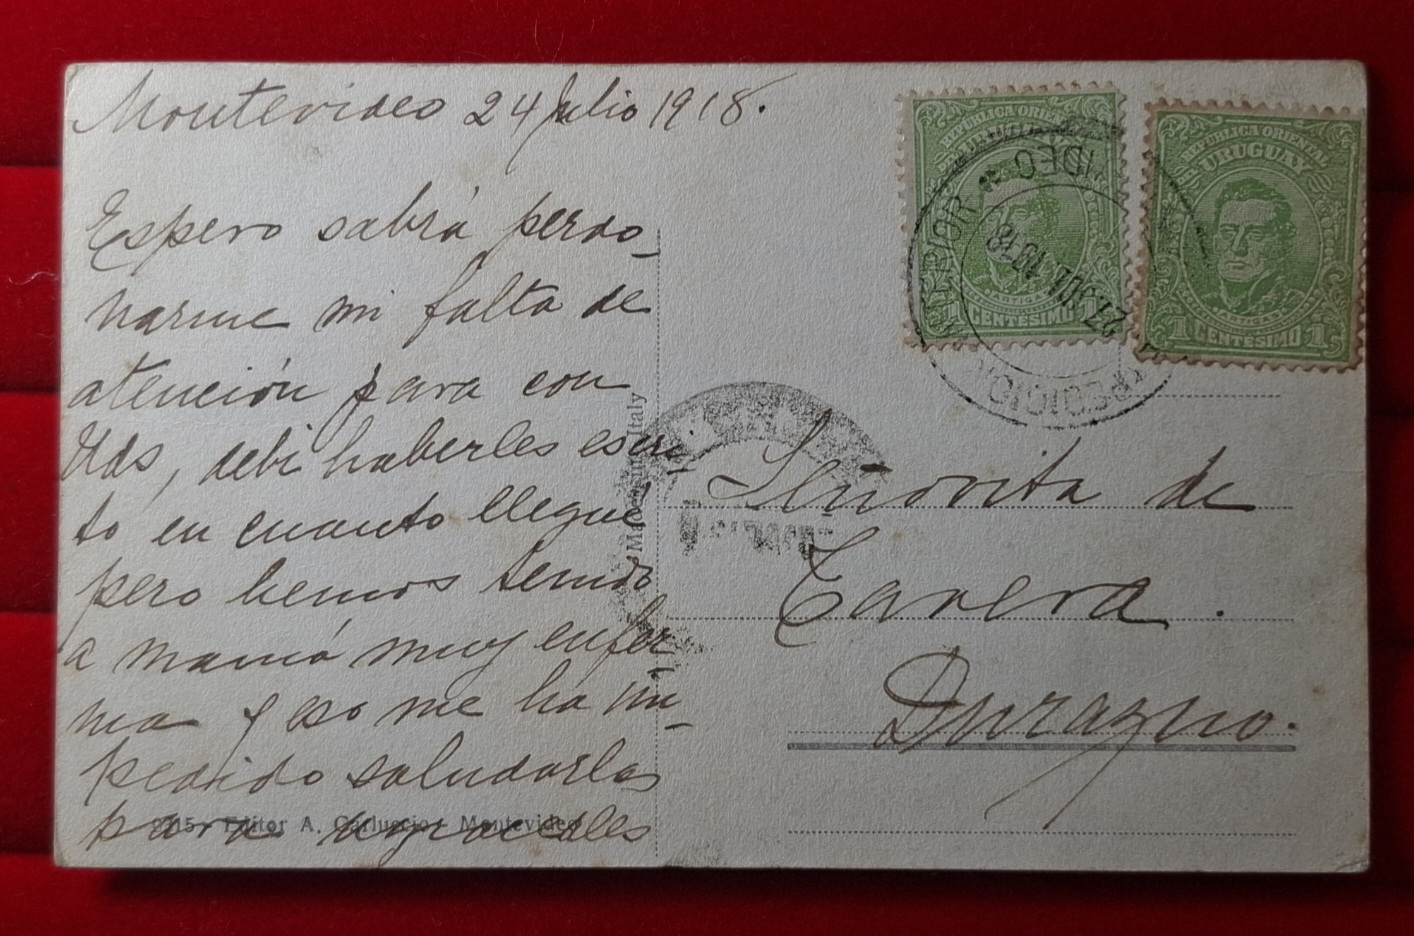 Montevideo 24 Julio 1918.
Espero sabrá perdo_
narme mi falta de
atención para con
Uds, debi haberles escri_
to en cuanto llegué
pero hemos tenido
a mamá muy enfer_
ma y eso me ha im_
pedido saludarlas
para agradecerles
Editor A. Carluccio - Montevideo
Made in Italy
REPUBLICA ORIENTAL
CENTESIMO
REPUBLICA ORIENTAL
URUGUAY
ARTIGAS
1 CENTESIMO 1
27 JUL 1918
Señorita de
Tavera.
Durazno.